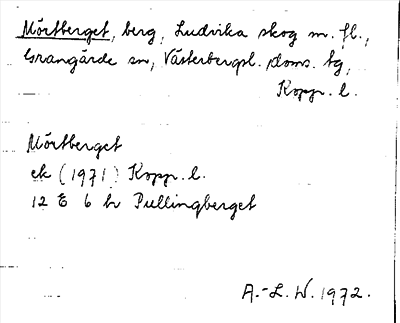 Mörtberget, berg, Ludvika skog m. fl.,
Grangärde sn, Västerbergsl. doms. tg,
Kopp. l.
Mörtberget
ek (1971) Kopp. l.
12 E 6 h Pullingberget
A.-L. W. 1972.